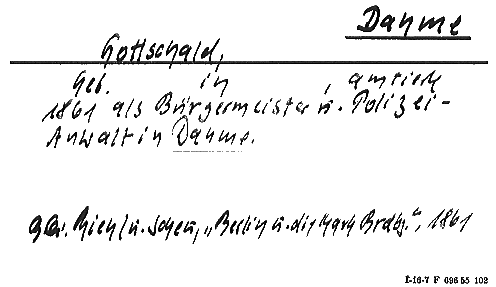 Dahme
Gottschald,
Geb. in , amtiert
1861 als Bürgermeister u. Polizei-
Anwalt in Dahme.
u. „Berlin u. die Mark Brdbg.", 1861
I-16-7 F 696 55 102